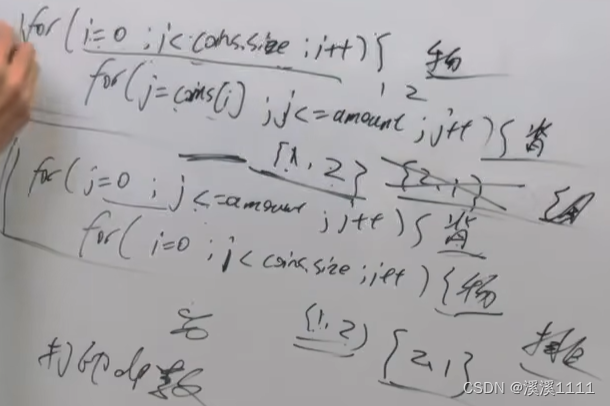 for(i=0 ; i<coins.size ; i++){ 物
1 2
for(j=coins[i] ; j<=amount ; j++){ 背
{1,2} {2,1}
for(j=0 ; j<=amount ; j++){ 背
for(i=0 ; i<coins.size ; i++){物
{1,2} {2,1} 排
打印dp数
CSDN @溪溪1111